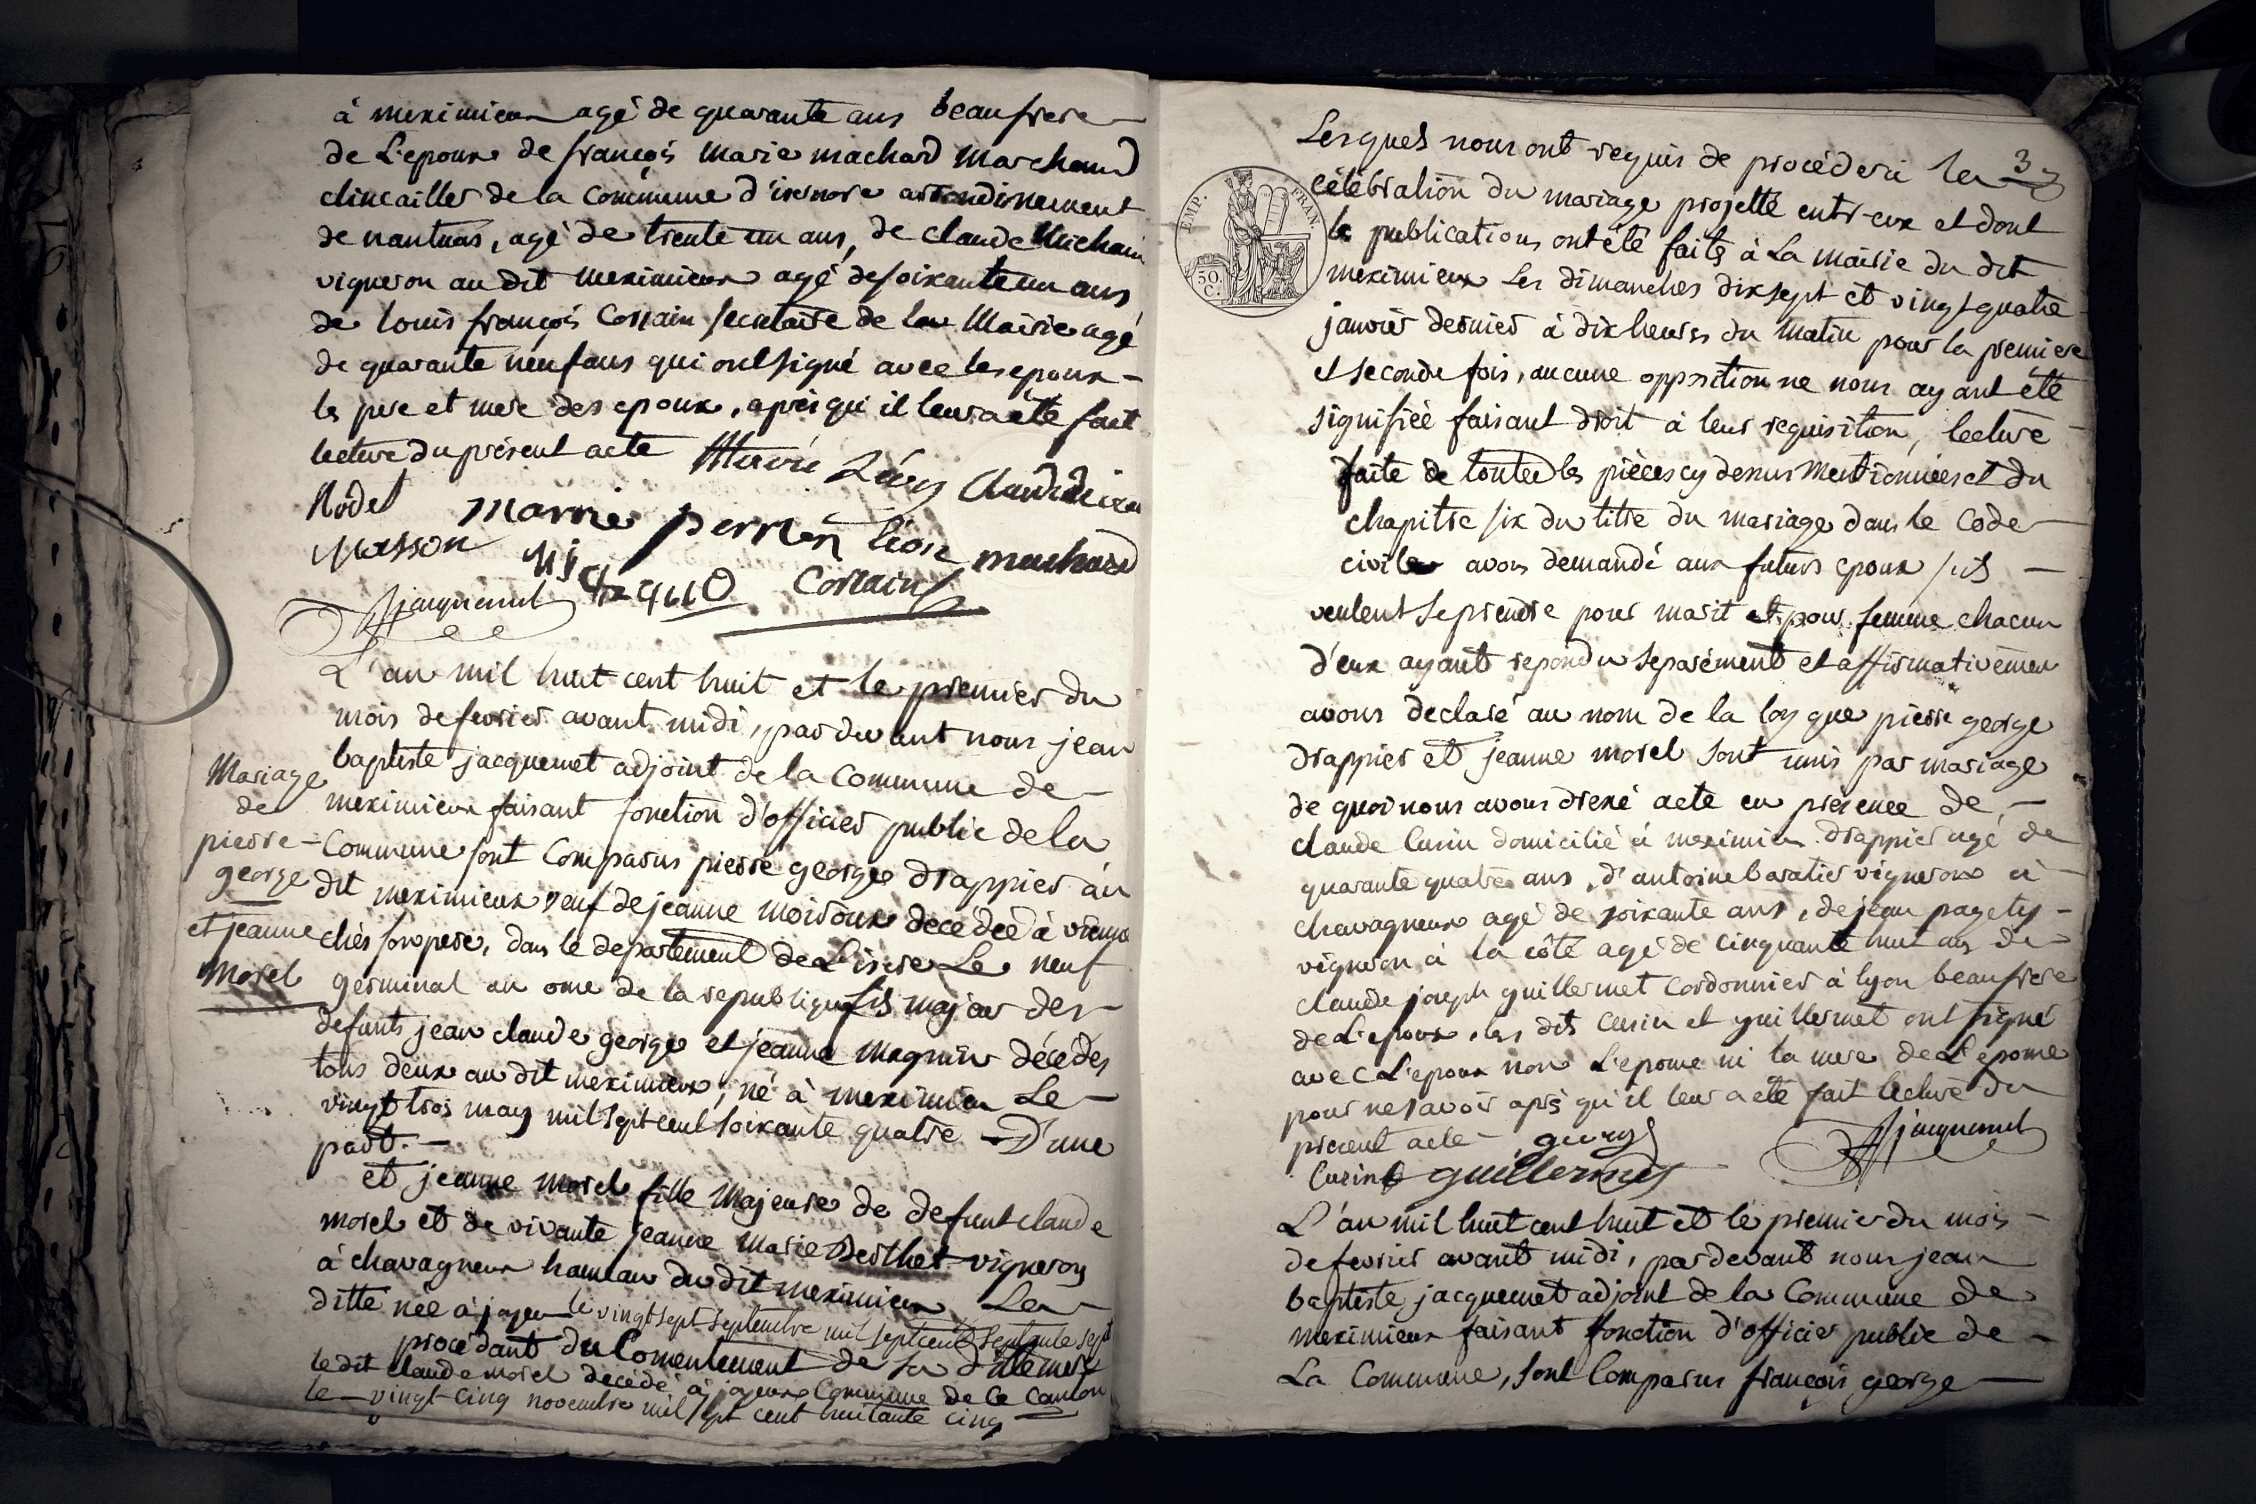 à meximieux agé de quarante ans beaufrere
de L'epoux de françois Marie machard Marchand
clincailler de la commune d'isernore arrondissement
de nantuas, agé de trente un ans, de claude Michaud
vigneron au dit meximieux agé de soixante un ans
de louis françois Corsain secretaire de la Mairie agé
de quarante neuf ans qui ont signé avec les epoux
les pere et mere des epoux, après qu'il leur a eté fait
lecture du présent acte
Rodet marrie perrin lion machard
masson Corsain
jacquemet
L'an mil huit cent huit et le premier du
mois de fevrier avant midi, pardevant nous jean
baptiste jacquemet adjoint de la Commune de
meximieux faisant fonction d'officier public de la
Commune sont Comparus pierre george drappier au
dit meximieux veuf de jeanne decedée à
chés son pere, dans le departement de L'isere Le neuf
germinal an onze de la republique fils majeur des
defunts jean claude george et jeanne magnin décédés
tous deux au dit meximieux, né à meximieux Le
vingt trois may mil sept cent soixante quatre D'une
part.
Mariage
de
pierre
george
et jeanne
Morel
et jeanne Morel fille Majeure de defunt claude
morel et de vivante jeanne Marie Berthet vigneron
à chavagneux hameau du dit meximieux La
ditte née à joyeux le vingt sept septembre mil sept cent septante sept
procédant du Consentement de sa ditte mere
le dit claude morel decédé à joyeux Commune de ce canton
le vingt cinq novembre mil sept cent huitante cinq
3
Lesquels nous ont requis de procéder à la
célébration du mariage projetté entr'eux et dont
les publications ont été faites à La Mairie du dit
EMP. FRAN.
50.
C.
meximieux Les dimanches dix sept et vingt quatre
janvier dernier à dix heures du Matin pour la premiere
et seconde fois, aucune opposition ne nous ayant été
signifiée faisant droit à leur requisition, lecture
faite de toutes les pièces cy dessus Mentionnées et du
chapitre six du titre du mariage dans le Code
civile avons demandé aux futurs epoux s'ils
veulent se prendre pour marit et pour femme chacun
d'eux ayant repondu separément et affirmativemen
avons declaré au nom de la loy que pierre george
drappier et jeanne morel sont unis par mariage
de quoi nous avons dressé acte en presence de
claude Cusin domicilié à meximieux drappier agé de
quarante quatre ans, d'antoine baratier vigneron à
chavagneux agé de soixante ans, de jean page
vigneron à la côte agé de cinquante huit ans de
claude joseph guillermet Cordonnier à lyon beaufrere
de L'epoux, les dits Cusin et guillermet ont signé
avec L'epoux non L'epouse ni la mere de L'epouse
pour ne savoir après qu'il leur a eté fait lecture du
present acte george jacquemet
Cusin guillermet
L'an mil huit cent huit et le premier du mois
de fevrier avant midi, pardevant nous jean
baptiste jacquemet adjoint de la Commune de
meximieux faisant fonction d'officier public de
La Commune, sont Comparus françois george